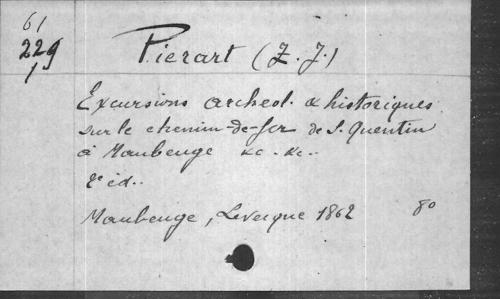 61
229
1
Pierart (Z. J.)
Excursions archeol. & historiques
sur le chemin-de-fer de S. Quentin
à Maubeuge &c. &c..
2e éd..
Maubeuge, Levecque 1862 8o